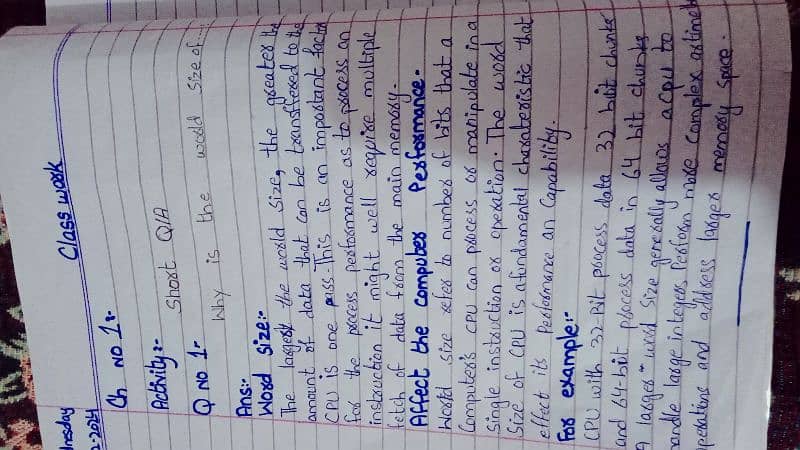 Class work
Ch No 1:-
Activity:-
Short Q/A
Q No 1-
Why is the wodd size of...
Ans:-
Word Size:-
The largest the world size, the greater the
amount of data that can be transffered to the
CPU is one pass. This is an important factor
for the process performance as to process an
instruction it might well require multiple
fetch of data from the main memory.
Affect the Computer Performance.
World size refer to number of bits that a
Computer's CPU can process or manipulate in a
single instruction or operation. The word
size of CPU is a fundamental charateristic that
effect its Performance an Capability.
For example:-
CPU with 32-Bit process data 32 bit chunks
and 64-bit process data in 64 bit chunks
A larger word size generally allows a cpu to
handle large integers Perform more complex
operations and address larger memory space.